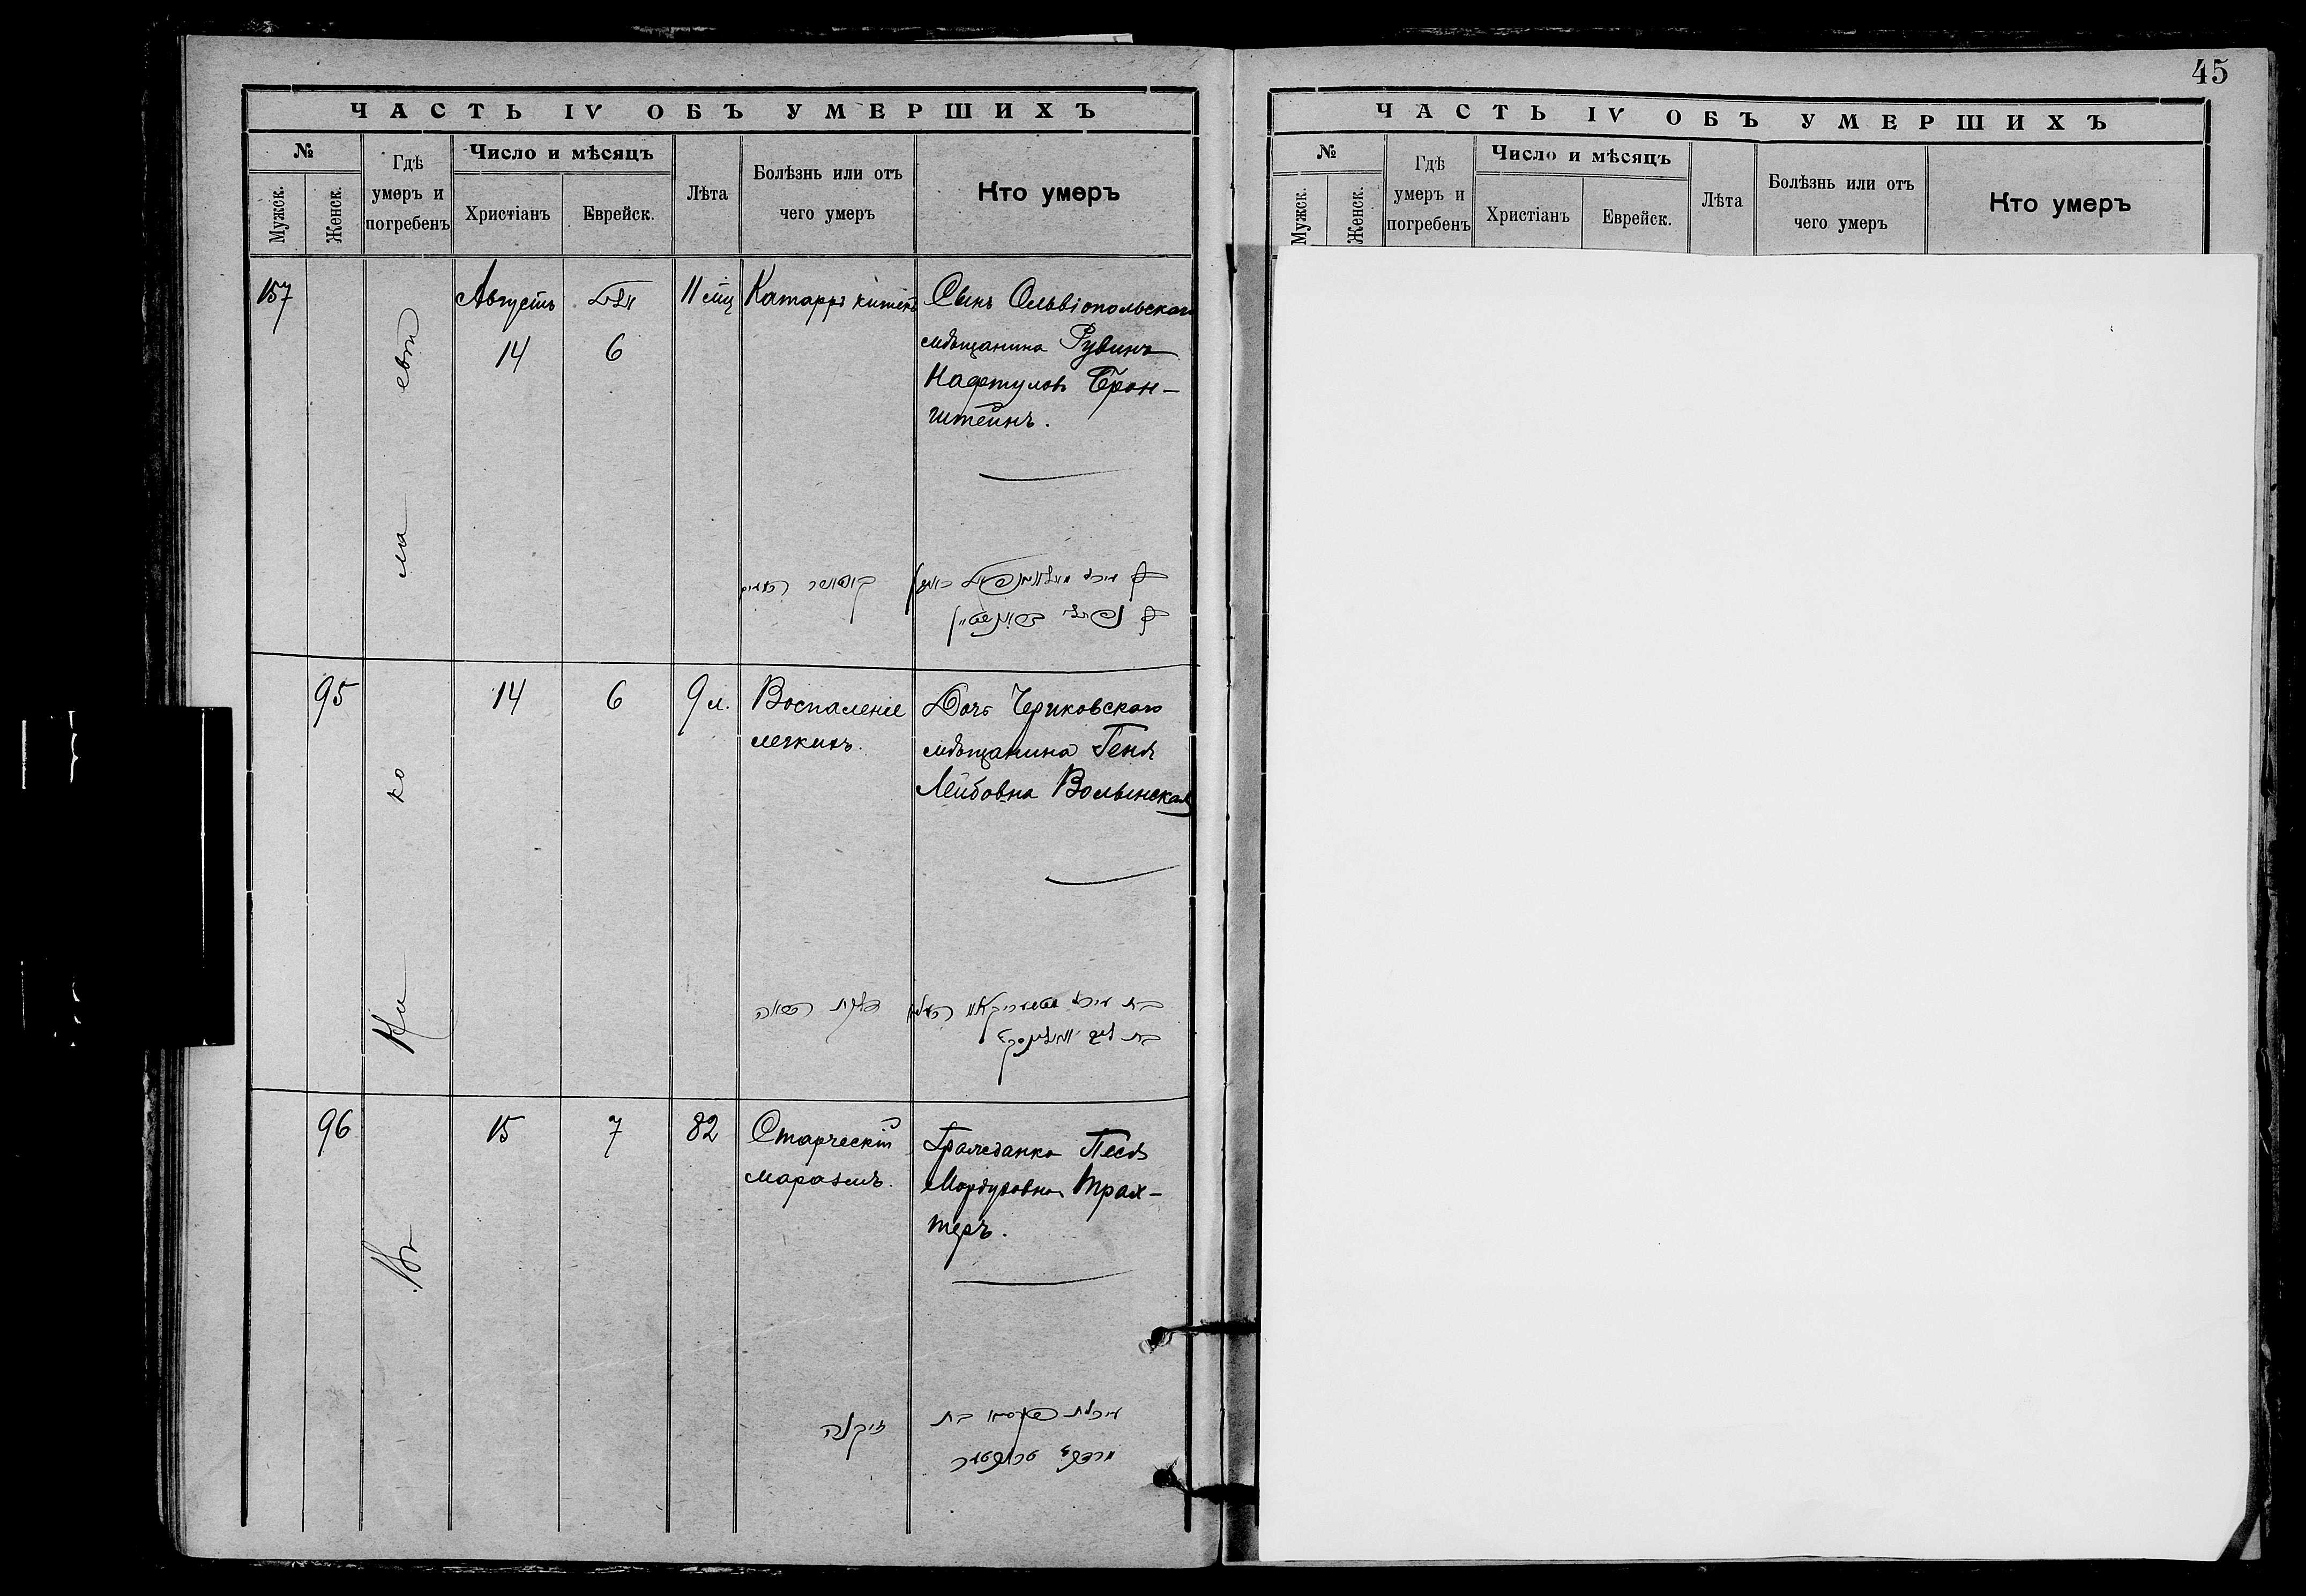 45
ЧАСТЬ IV ОБЪ УМЕРШИХЪ
№
Мужск.
Женск.
Гдѣ
умеръ и
погребенъ
Число и мѣсяцъ
Христіанъ
Еврейск.
Лѣта
Болѣзнь или отъ
чего умеръ
Кто умеръ
157
Августъ
14
אב
6
11 мц
Катарръ кишекъ
Сынъ Ольвіопольскаго
мѣщанина Рувинъ
Нафтуловъ Брон-
штейнъ.
95
14
6
9 л.
Воспаленіе
легкихъ.
Дочь Чериковскаго
мѣщанина Геня
Лейбовна Волынская
דלקת הריאה
96
15
7
82
Старческій
маразмъ.
Гражданка Песя
Мордуховна Трах-
теръ.
זיקנה
Въ Николаевѣ
ЧАСТЬ IV ОБЪ УМЕРШИХЪ
№
Мужск.
Женск.
Гдѣ
умеръ и
погребенъ
Число и мѣсяцъ
Христіанъ
Еврейск.
Лѣта
Болѣзнь или отъ
чего умеръ
Кто умеръ